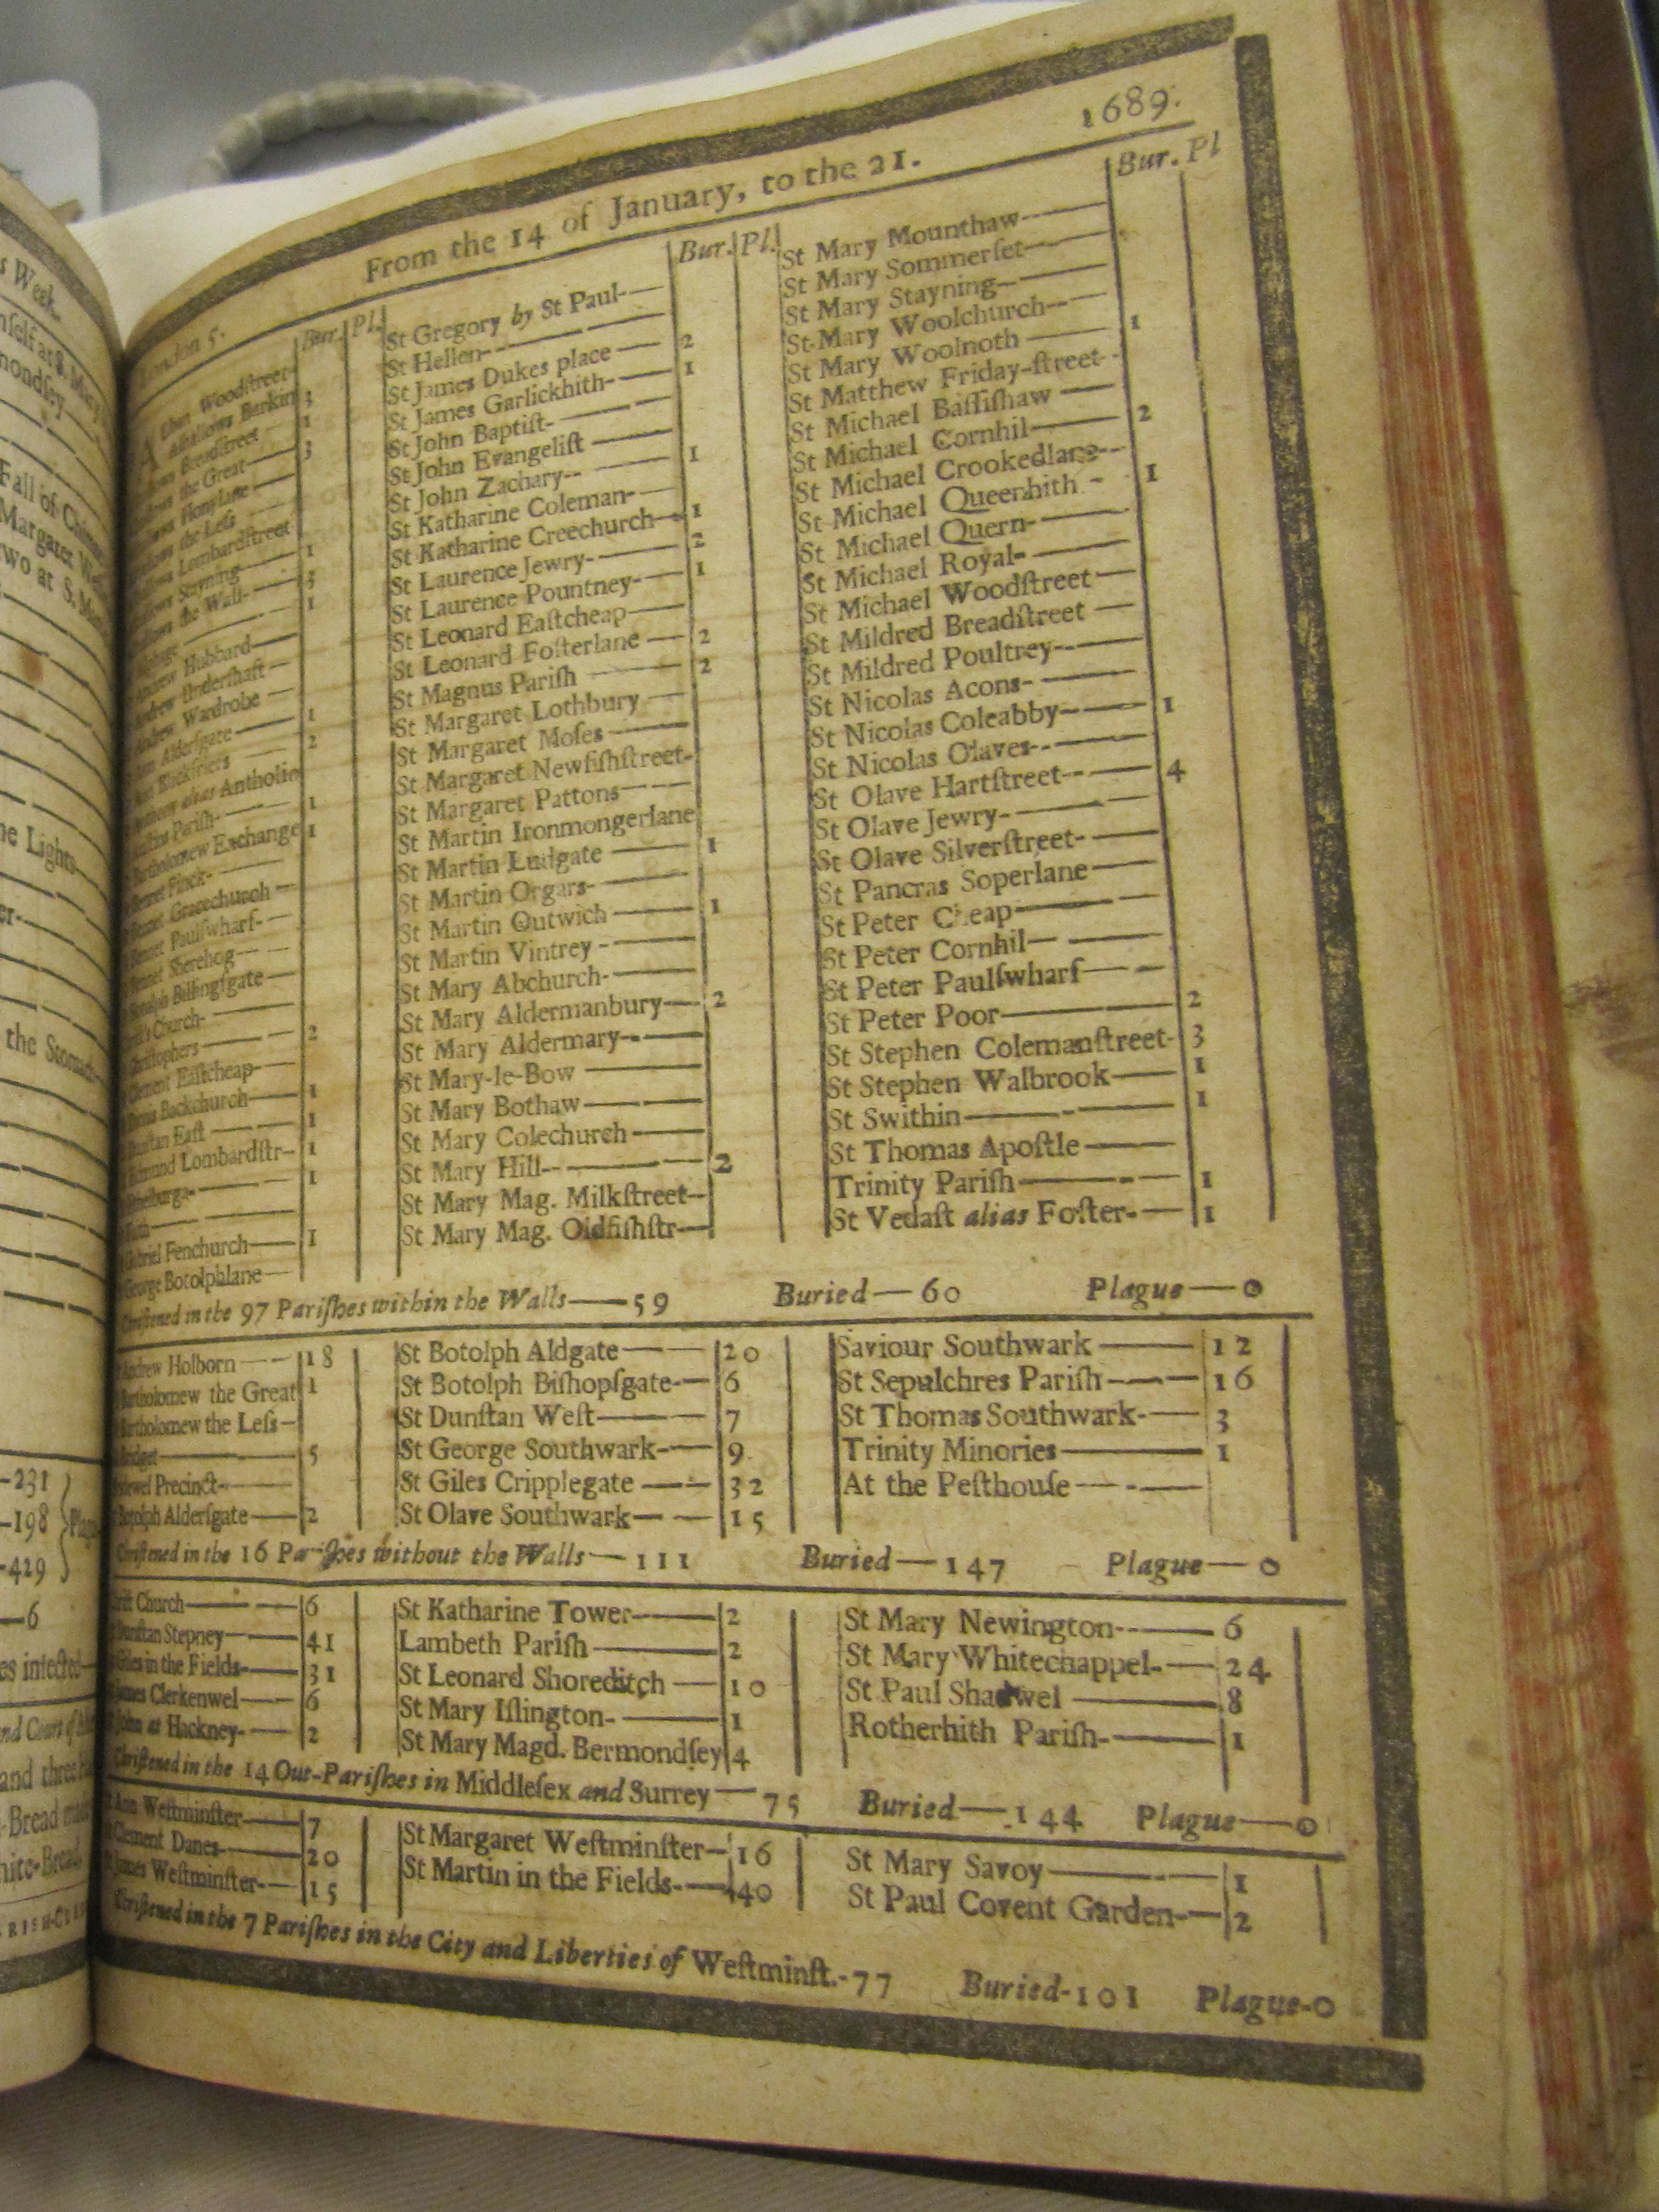 s Week.
Fall of
Margaret
two at S.
the Stomach
-231
-198
-429
—6
es infected—
1689.
From the 14 of January, to the 21.
London 5. Bur. Pl.
Woodſtreet-
Alhallows Barkin 3
Breadſtreet 1
the Great 3
Honylane
the Leſs
Lombardſtreet
Stayning 1
the Wall- 3
1
Hubbard
Underſhaft
Wardrobe
Alderſgate 1
Blackfriers 2
alias Antholin
Pariſh 1
Bartholomew Exchange 1
Bennet Finck-
Gracechurch
Bennet Paulſwharf-
Bennet Sherehog
Botolph Billingſgate
Church-
2
Clement Eaſtcheap-
Backchurch 1
Dunſtan Eaſt 1
Edmund Lombardſtr- 1
1
Gabriel Fenchurch 1
George Botolphlane
Bur. Pl.
St Gregory by St Paul-
St Hellen-
St James Dukes place 2
St James Garlickhith- 1
St John Baptiſt-
St John Evangeliſt
St John Zachary-- 1
St Katharine Coleman-
St Katharine Creechurch 1
St Laurence Jewry- 2
St Laurence Pountney- 1
St Leonard Eaſtcheap
St Leonard Foſterlane 2
St Magnus Pariſh 2
St Margaret Lothbury
St Margaret Moſes
St Margaret Newfiſhſtreet-
St Margaret Pattons
St Martin Ironmongerlane
St Martin Ludgate 1
St Martin Orgars-
St Martin Outwich 1
St Martin Vintrey -
St Mary Abchurch-
St Mary Aldermanbury 2
St Mary Aldermary-
St Mary-le-Bow
St Mary Bothaw
St Mary Colechurch
St Mary Hill- 2
St Mary Mag. Milkſtreet-
St Mary Mag. Oldfiſhſtr
Bur. Pl
St Mary Mounthaw
St Mary Sommerſet
St Mary Stayning
St Mary Woolchurch
St Mary Woolnoth 1
St Matthew Friday-ſtreet-
St Michael Baſſiſhaw
St Michael Cornhil 2
St Michael Crookedlane
St Michael Queenhith - 1
St Michael Quern-
St Michael Royal-
St Michael Woodſtreet
St Mildred Breadſtreet
St Mildred Poultrey-
St Nicolas Acons-
St Nicolas Coleabby 1
St Nicolas Olaves-
St Olave Hartſtreet 4
St Olave Jewry-
St Olave Silverſtreet-
St Pancras Soperlane
St Peter Cheap
St Peter Cornhil
St Peter Paulſwharf
St Peter Poor 2
St Stephen Colemanſtreet- 3
St Stephen Walbrook 1
St Swithin 1
St Thomas Apoſtle
Trinity Pariſh 1
St Vedaſt alias Foſter- 1
Chriſtened in the 97 Pariſhes within the Walls—59 Buried—60 Plague—0
Andrew Holborn 18
Bartholomew the Great 1
Bartholomew the Leſs
Bridget 5
Precinct
Botolph Alderſgate 2
St Botolph Aldgate 20
St Botolph Biſhopſgate- 6
St Dunſtan Weſt 7
St George Southwark- 9
St Giles Cripplegate 32
St Olave Southwark 15
Saviour Southwark 12
St Sepulchres Pariſh 16
St Thomas Southwark- 3
Trinity Minories 1
At the Peſthouſe
Chriſtened in the 16 Pariſhes without the Walls—111 Buried—147 Plague—0
Church 6
Dunſtan Stepney 41
Giles in the Fields- 31
James Clerkenwel 6
John at Hackney- 2
St Katharine Tower 2
Lambeth Pariſh 2
St Leonard Shoreditch 10
St Mary Iſlington- 1
St Mary Magd. Bermondſey 4
St Mary Newington- 6
St Mary Whitechappel- 24
St Paul Shadwel 8
Rotherhith Pariſh- 1
Chriſtened in the 14 Out-Pariſhes in Middleſex and Surrey—75 Buried—144 Plague—0
Ann Weſtminſter 7
Clement Danes 20
James Weſtminſter- 15
St Margaret Weſtminſter 16
St Martin in the Fields- 40
St Mary Savoy 1
St Paul Covent Garden- 2
Chriſtened in the 7 Pariſhes in the City and Liberties of Weſtminſt.-77 Buried-101 Plague-0